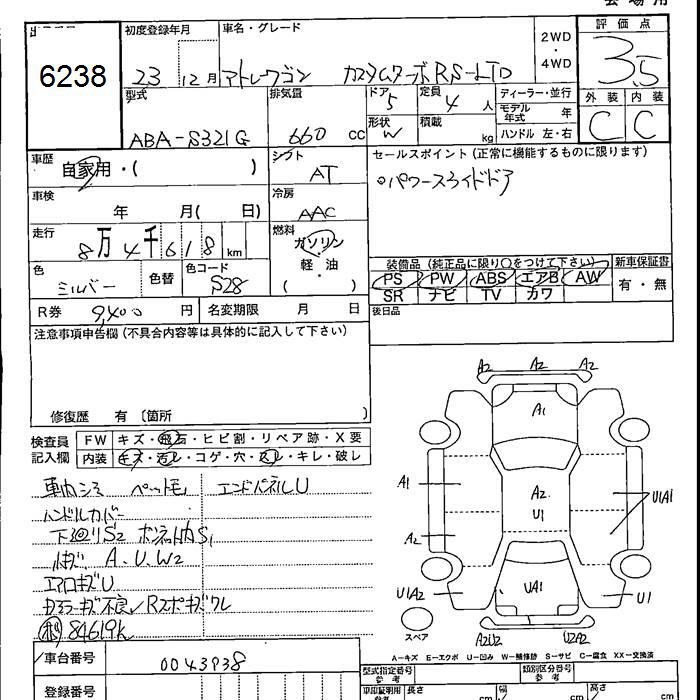 6238
初度登録年月
23 12月
車名・グレード
アトレーワゴン カスタムターボRS-LTD
2WD
・
4WD
評価点
3.5
外装 内装
C C
型式
ABA-S321G
排気量
660 cc
ドア
5
定員
4 人
形状
W
積載
kg
ディーラー・並行
モデル年式 年
ハンドル 左・右
車歴
自家用・( )
シフト
AT
車検
年 月( 日)
冷房
AAC
走行
8万4千618km
燃料
ガソリン
軽・油
・
( )
色
シルバー
色替
色コード
S28
R券 9,400 円
名変期限 月 日
セールスポイント(正常に機能するものに限ります)
○パワースライドドア
装備品(純正品に限り○をつけて下さい)
新車保証書
PS PW ABS エアB AW
SR ナビ TV カワ
有・無
後日品
注意事項申告欄(不具合内容等は具体的に記入して下さい)
修復歴 有(箇所 )
検査員記入欄
FW キズ・飛石・ヒビ割・リペア跡・X要
内装 キズ・汚レ・コゲ・穴・スレ・キレ・破レ
エンドパネルU
ハンドルカバー
下廻りS2
A.U.W2
エアロキズU
84619k
車台番号 0043938
登録番号
A2 A2 A2
A1
A1
A2
U1
A2
U1A1
U1A2
UA1
U1
スペア
A2U2 U2A2
A－キズ E－エクボ U－凹み W－補修跡 S－サビ C－腐食 XX－交換済
型式指定番号
参考
類別区分番号
参考
長さ
幅
高さ
cm
cm